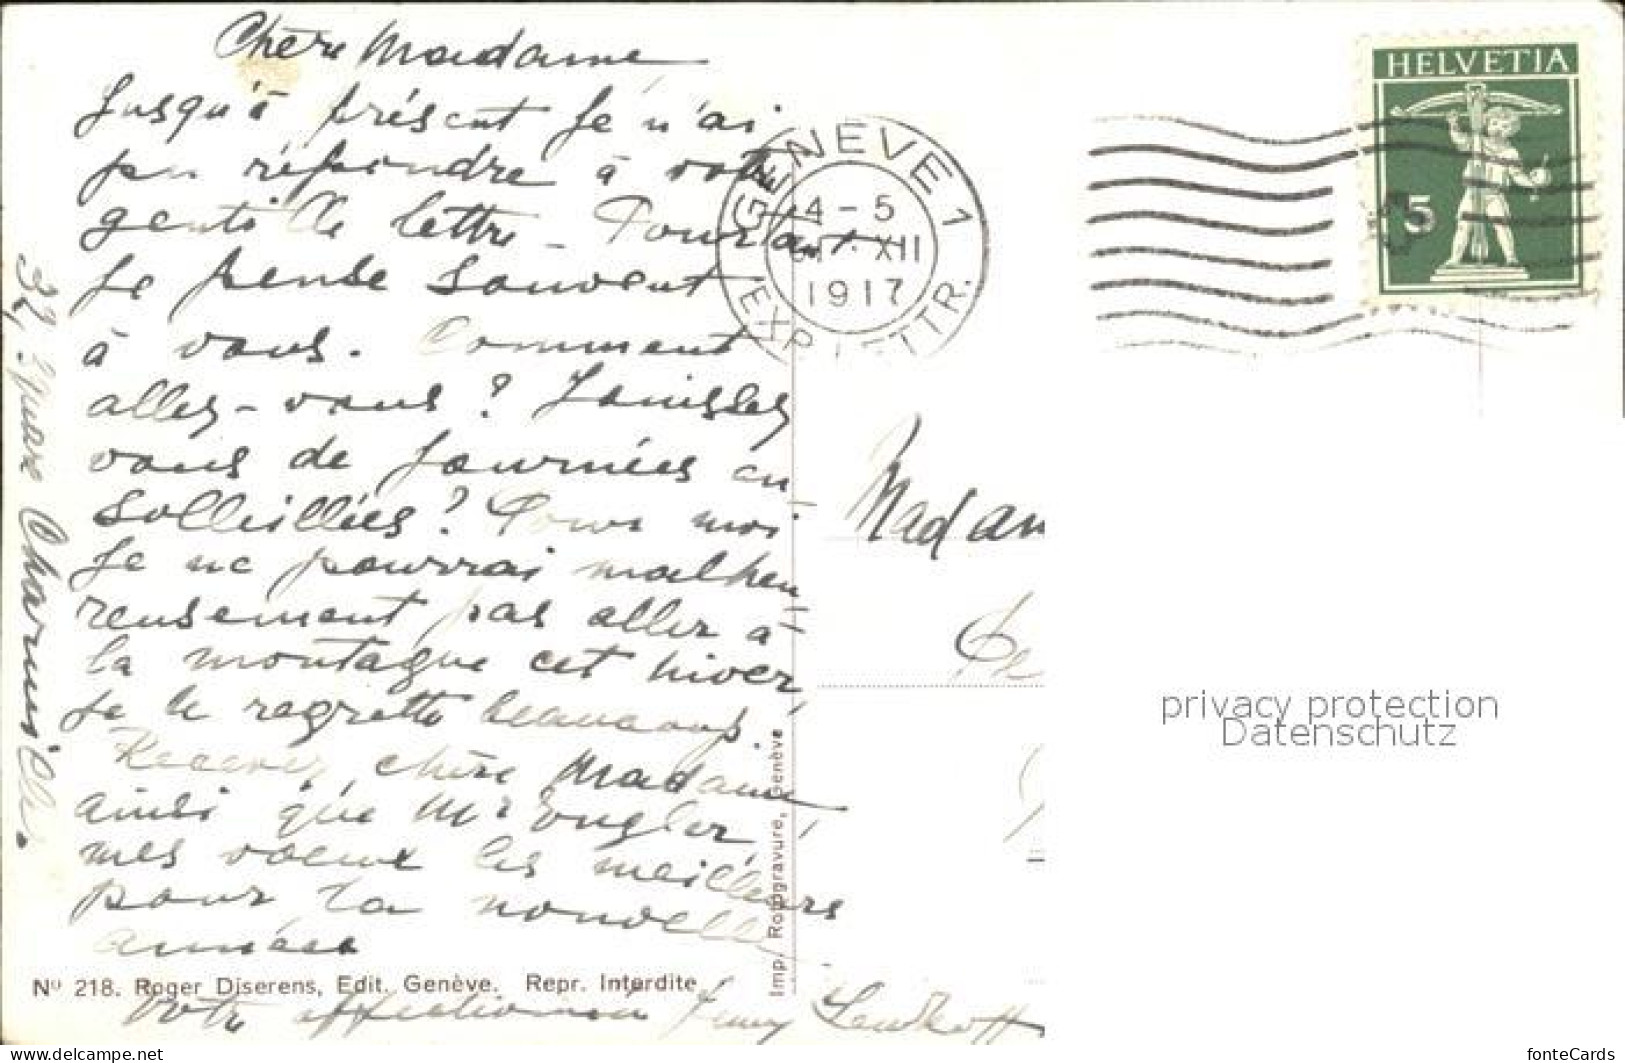 Chère Madame
Jusqu'à présent je n'ai
pu répondre à votre
gentille lettre – Pourtant
je pense souvent
à vous. Comment
allez-vous? Jouissez
vous de journées en-
solleillées? Pour moi
je ne pourrai malheu-
reusement pas aller à
la montagne cet hiver,
je le regrette beaucoup.
Recevez, chère Madame
ainsi que Mr Engler,
mes voeux les meilleurs
pour la nouvelle
année
Votre affectionnée Jenny
32, Square Charmilles.
Nº 218. Roger Diserens, Edit. Genève. Repr. Interdite
Imp. Rotogravure, Genève
GENÈVE 1
14-5
XII
1917
EXP. LETTR.
HELVETIA
5
Madam
privacy protection
Datenschutz
https://www.delcampe.net
fonteCards